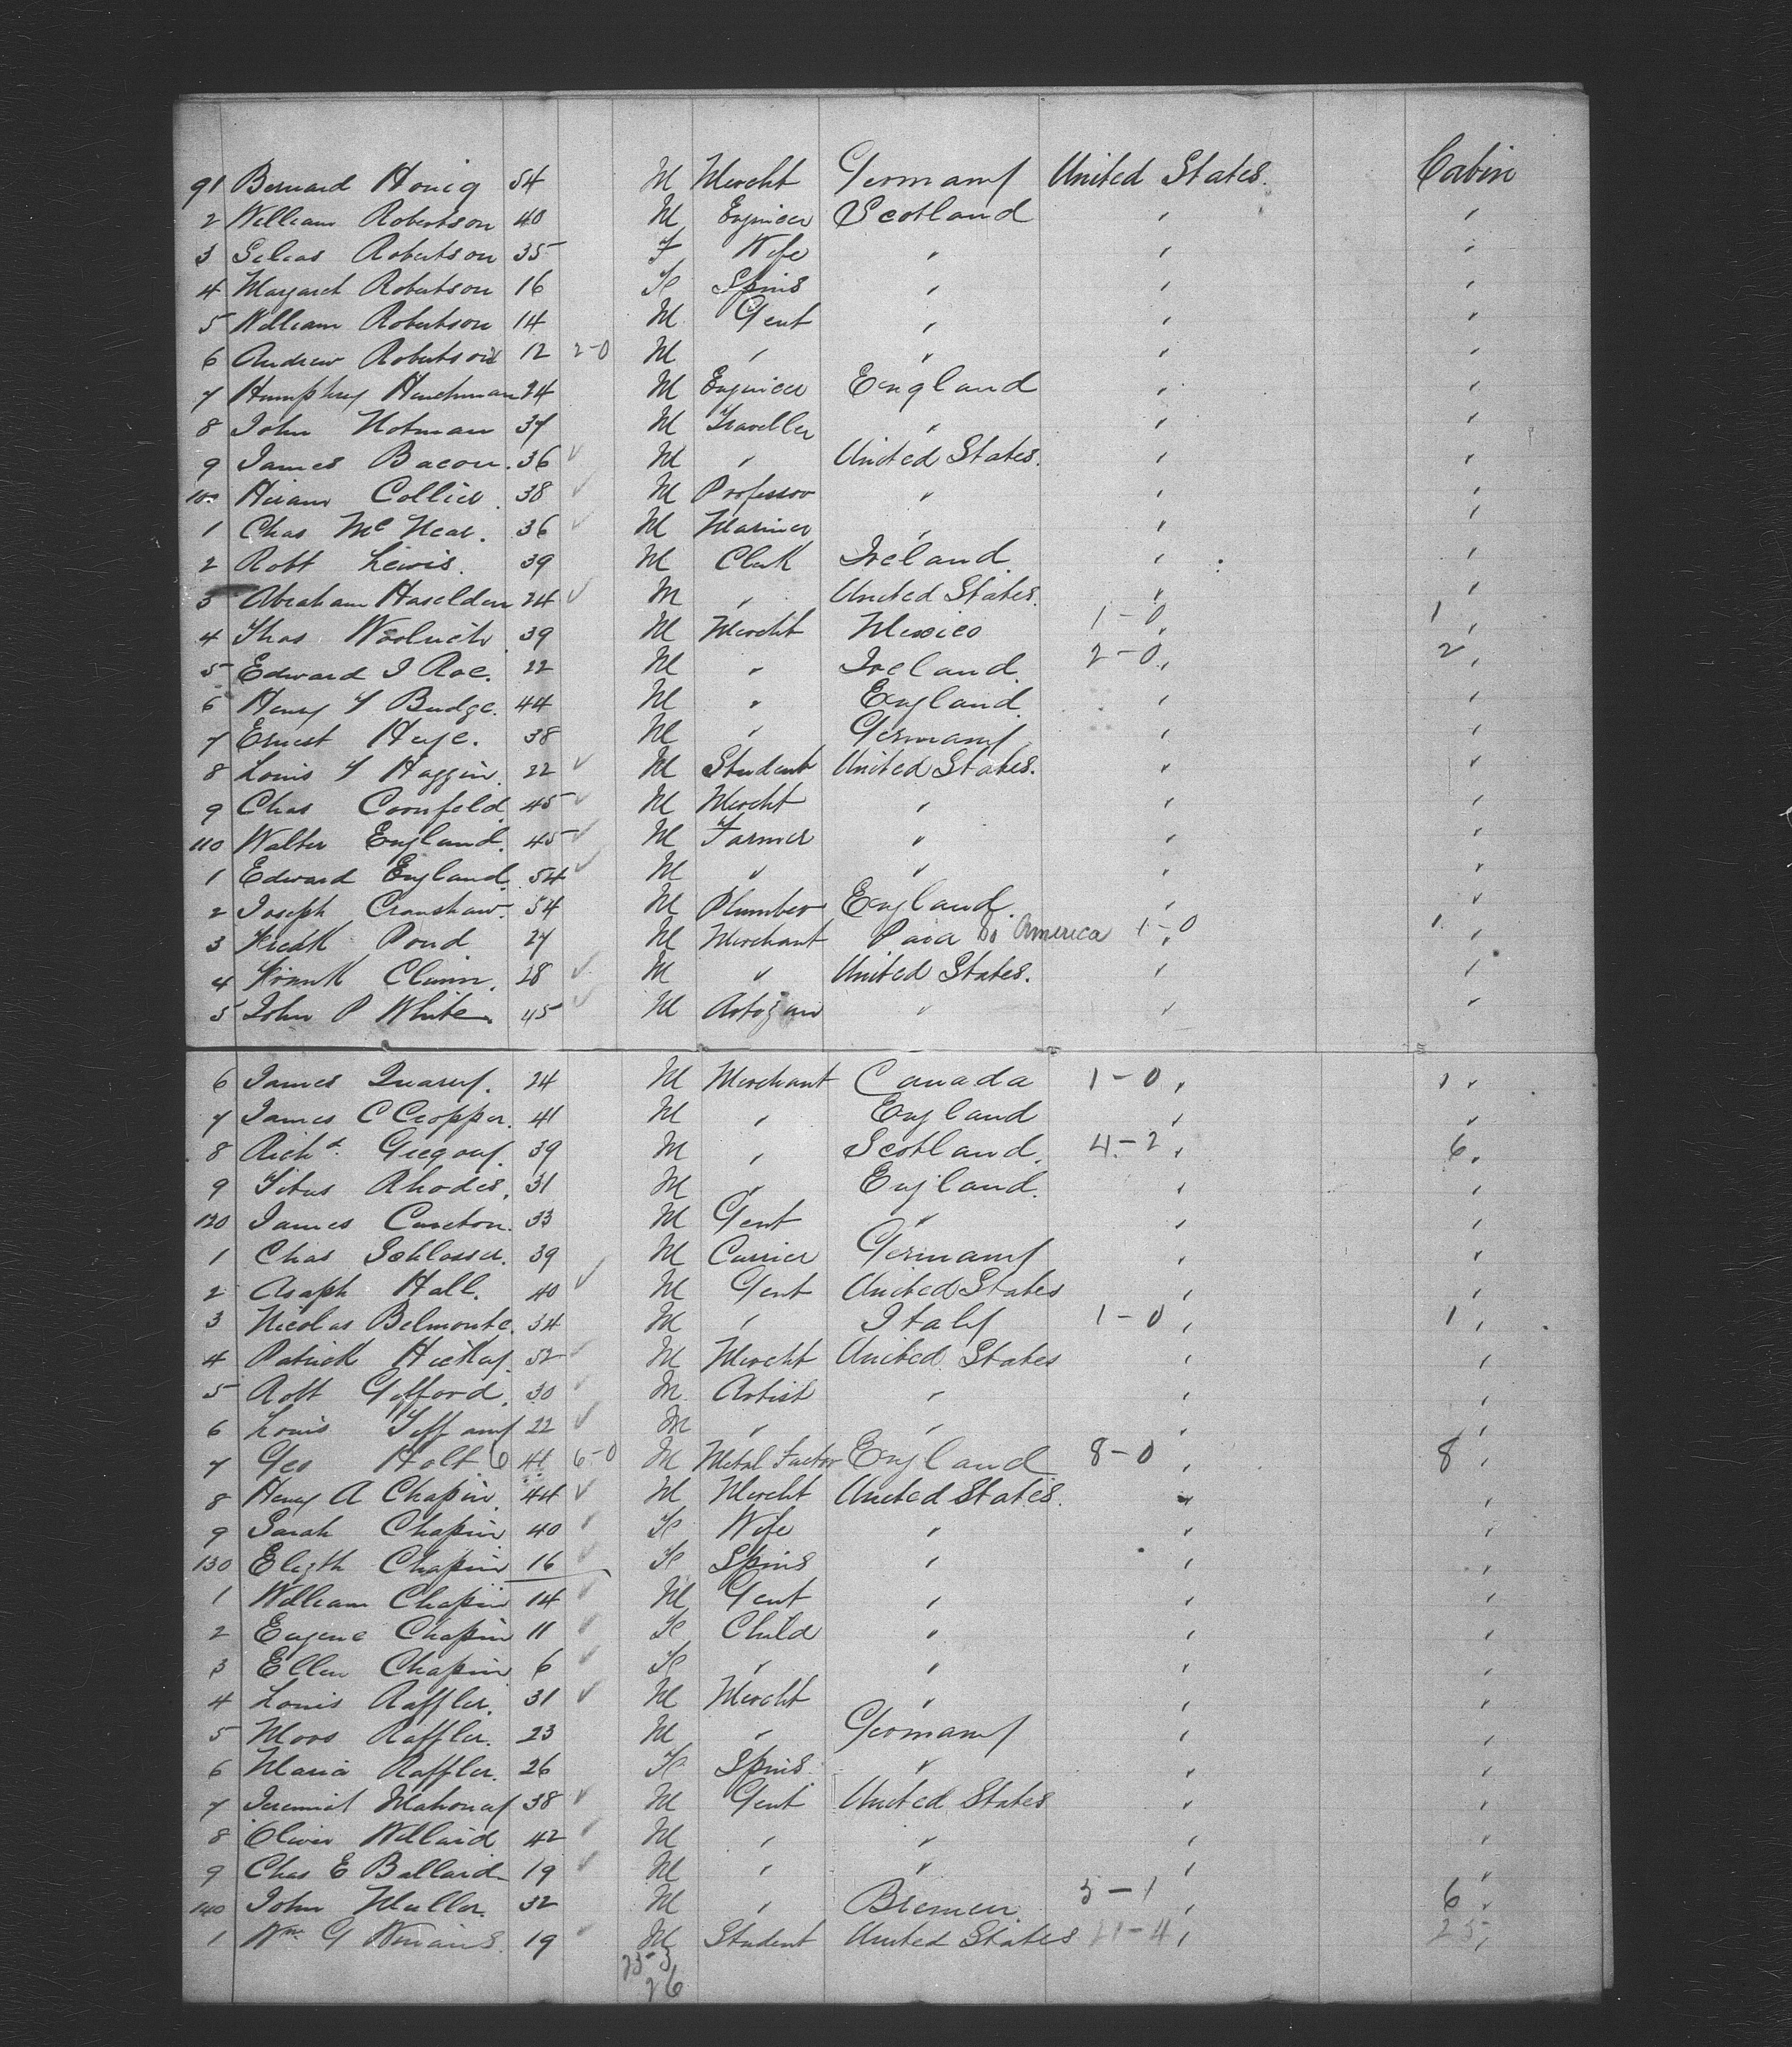 91 Bernard Honig 54 M Mercht Germany United States. Cabin
2 William Robertson 40 M Engineer Scotland " "
3 Robertson 35 F Wife " " "
4 Margaret Robertson 16 F Spins " " "
5 William Robertson 14 M Gent " " "
6 Andrew Robertson 12 2-0 M " " " "
7 Humphrey Henchman 24 M Engineer England " "
8 John Notman 37 M Traveller " " "
9 James Bacon. 36 ✓ M " United States. " "
100 Hiram Collier 38 ✓ M Professor " " "
1 Chas McNear. 36 ✓ M Mariner " " "
2 Robt Lewis. 39 M Clerk Ireland. " "
3 Abraham Haselden 24 ✓ M " United States. " "
4 Thos Woolrich 39 M Mercht Mexico 1-0 " 1 "
5 Edward J Roe. 22 M " Ireland. 2-0 " 2 "
6 Henry T Budge. 44 M " England. " "
7 Ernest Heye. 38 M " Germany " "
8 Louis T Haggin. 22 ✓ M Student United States. " "
9 Chas Cornfeld. 45 ✓ M Mercht " " "
110 Walter England. 45 ✓ M Farmer " " "
1 Edward England. 54 ✓ M " " " "
2 Joseph Cranshaw. 54 M Plumber England. " "
3 Fredk Pond 27 M Merchant Para So America 1-0 " 1 "
4 Frank 28 ✓ M " United States. " "
5 John P White 45 ✓ M Artizan " " "
6 James 24 M Merchant Canada 1-0 " 1 "
7 James C Cropper. 41 M " England " "
8 Richd. Gregory. 39 M " Scotland. 4-2 " 6 "
9 Titus Rhodes. 31 M " England. " "
120 James Cureton. 33 M Gent " " "
1 Chas Schlosser. 39 M Currier Germany " "
2 Asaph Hall. 40 ✓ M Gent United States " "
3 Nicolas Belmonte. 34 M " Italy 1-0 " 1 "
4 Patrick Hickey. 52 ✓ M Mercht United States " "
5 Robt Gifford. 30 ✓ M Artist " " "
6 Louis Tiffany 22 ✓ M " " " "
7 Geo Holt 41 6-0 M Metal Factor England 8-0 " 8 "
8 Henry A Chapin. 44 ✓ M Mercht United States. " "
9 Sarah Chapin 40 ✓ F Wife " " "
130 Elizth Chapin 16 ✓ F Spins " " "
1 William Chapin 14 ✓ M Gent " " "
2 Eugene Chapin 11 ✓ F Child " " "
3 Ellen Chapin 6 ✓ F " " " "
4 Louis Raffler. 31 ✓ M Mercht " " "
5 Moos Raffler. 23 M " Germany " "
6 Maria Raffler. 26 F Spins " " "
7 Jeremiah Mahoney 38 ✓ M Gent United States " "
8 Oliver Willard 42 ✓ M " " " "
9 Chas E Ballard 19 ✓ M " " " "
140 John Muller. 32 M " Bremen. 5-1 " 6 "
1 Wm. G Winans. 19 ✓ M Student United States 21-4 " 25 "
23-3
26